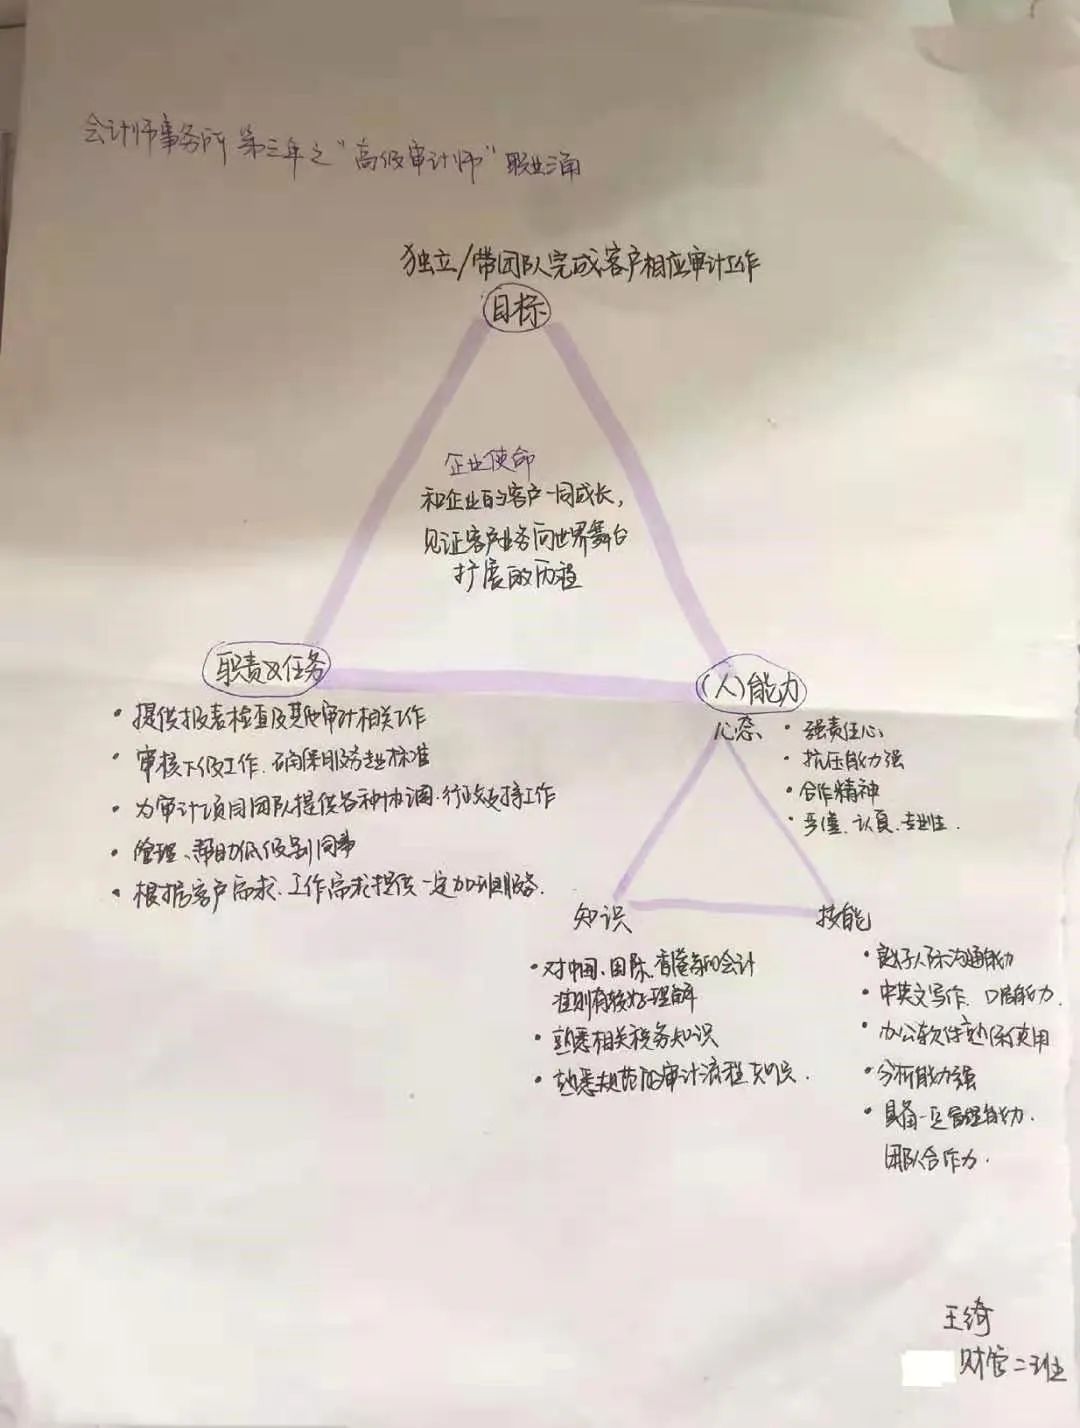 会计师事务所 第三年之"高级审计师"职业三角
独立/带团队完成客户相应审计工作
目标
企业使命
和企业的客户一同成长,
见证客户业务向世界舞台
扩展的历程
职责&任务
• 提供报表检查及其他审计相关工作
• 审核下级工作、确保服务专业标准
• 为审计项目团队提供各种协调、行政支持工作
• 管理、帮助低级别同事
• 根据客户需求、工作需求提供一定加班服务.
(人)能力
心态
• 强责任心
• 抗压能力强
• 合作精神
• 严谨、认真、专业性.
知识
• 对中国、国际、香港等的会计
准则有较好理解
• 熟悉相关税务知识
• 熟悉规范的审计流程知识.
技能
• 良好人际沟通能力
• 中英文写作、口语能力.
• 办公软件熟练使用
• 分析能力强
• 具备一定管理能力.
团队合作力.
王绮
财管二班